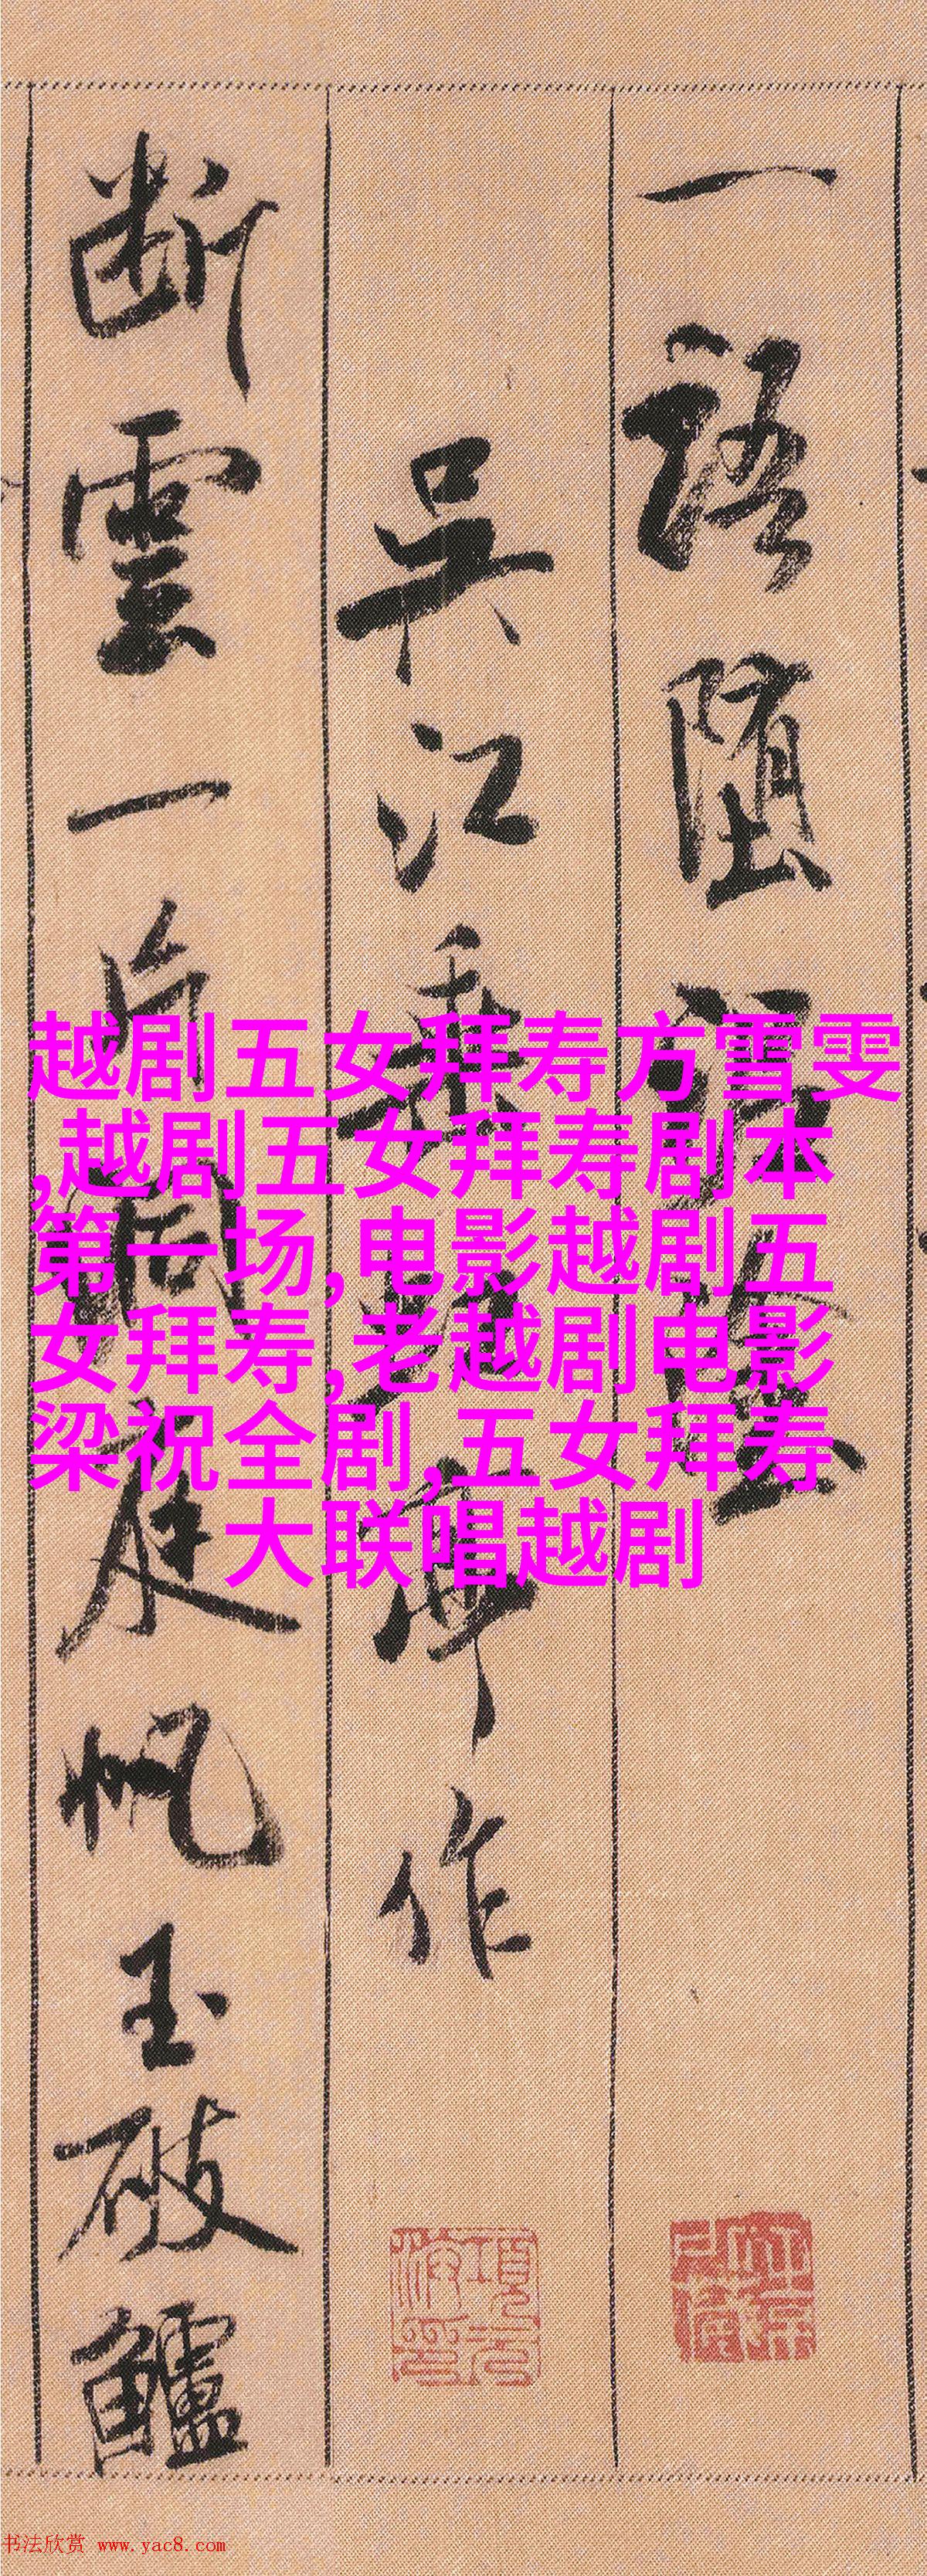 一語墮泥塗
吳江垂虹亭作
斷雲一片洞庭帆玉破鱸
越剧五女拜寿方雪雯
,越剧五女拜寿剧本
第一场,电影越剧五
女拜寿,老越剧电影
梁祝全剧,五女拜寿
大联唱越剧
书法欣赏 www.yac8.com